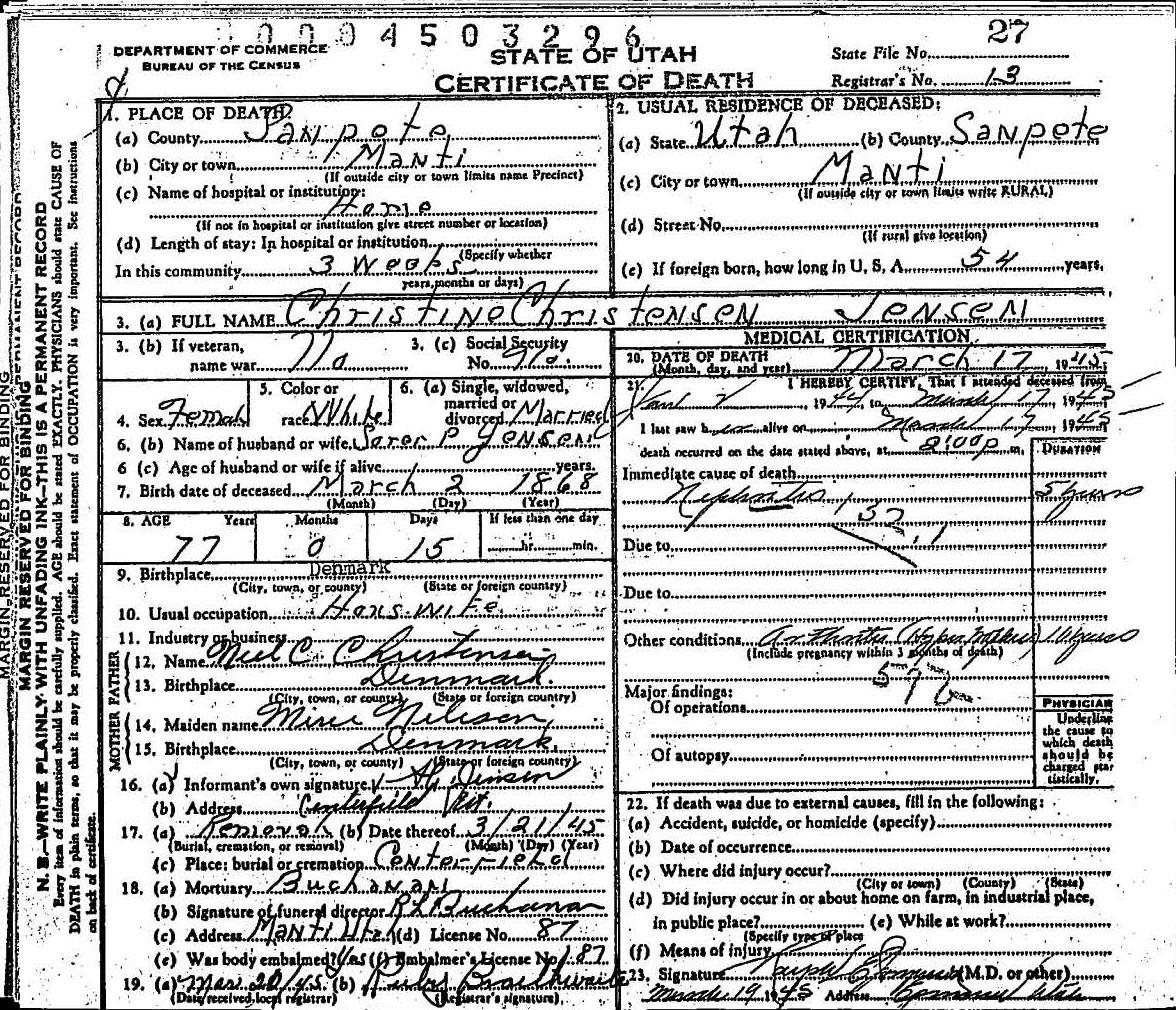 0004503296
27
DEPARTMENT OF COMMERCE
BUREAU OF THE CENSUS
STATE OF UTAH
CERTIFICATE OF DEATH
State File No.
Registrar's No. 13
1. PLACE OF DEATH:
(a) County Sanpete
(b) City or town Manti
(If outside city or town limits name Precinct)
(c) Name of hospital or institution:
Home
(If not in hospital or institution give street number or location)
(d) Length of stay: In hospital or institution
(Specify whether
In this community 3 Weeks
years, months or days)
2. USUAL RESIDENCE OF DECEASED:
(a) State Utah (b) County Sanpete
(c) City or town Manti
(If outside city or town limits write RURAL)
(d) Street No.
(If rural give location)
(e) If foreign born, how long in U. S. A. 54 years.
3. (a) FULL NAME Christine Christensen Jensen
3. (b) If veteran, name war No
3. (c) Social Security No. No.
4. Sex Female
5. Color or race White
6. (a) Single, widowed, married or divorced Married
6. (b) Name of husband or wife Soren P Jensen
6 (c) Age of husband or wife if alive years.
7. Birth date of deceased March 2 1868
(Month) (Day) (Year)
8. AGE Years Months Days If less than one day
77 0 15 hr. min.
9. Birthplace Denmark
(City, town, or county) (State or foreign country)
10. Usual occupation Hous.wife
11. Industry or business
FATHER
12. Name Niel C. Christensen
13. Birthplace Denmark.
(City, town, or county) (State or foreign country)
MOTHER
14. Maiden name Nielsen
15. Birthplace Denmark
(City, town, or county) (State or foreign country)
16. (a) Informant's own signature Jensen
(b) Address Centerfield Ut.
17. (a) Removal (b) Date thereof 3/21/45
(Burial, cremation, or removal) (Month) (Day) (Year)
(c) Place: burial or cremation Centerfield
18. (a) Mortuary Buchanan
(b) Signature of funeral director RL Buchanan
(c) Address Manti Utah (d) License No. 87
(e) Was body embalmed? Yes (f) Embalmer's License No. 187
19. (a) Mar 20/45 (b) Ruby Braithwaite
(Date received, local registrar) (Registrar's signature)
MEDICAL CERTIFICATION
20. DATE OF DEATH March 17, 1945
(Month, day, and year)
21. I HEREBY CERTIFY, That I attended deceased from
1944, to March 17, 1945
I last saw her alive on March 17, 1945
death occurred on the date stated above, at 2:00 p m.
DURATION
Immediate cause of death
Nephritis 5 years
132.1
Due to
Due to
Other conditions Arthritis 10 years
(Include pregnancy within 3 months of death)
Major findings:
Of operations
Of autopsy
PHYSICIAN
Underline
the cause to
which death
should be
charged sta
tistically.
22. If death was due to external causes, fill in the following:
(a) Accident, suicide, or homicide (specify)
(b) Date of occurrence
(c) Where did injury occur?
(City or town) (County) (State)
(d) Did injury occur in or about home on farm, in industrial place,
in public place? (e) While at work?
(Specify type of place
(f) Means of injury
23. Signature (M.D. or other)
March 19 1945 Address
MARGIN RESERVED FOR BINDING
MARGIN RESERVED FOR BINDING
N. B.—WRITE PLAINLY WITH UNFADING INK—THIS IS A PERMANENT RECORD
Every item of information should be carefully supplied. AGE should be stated EXACTLY. PHYSICIANS should state CAUSE OF
DEATH in plain terms, so that it may be properly classified. Exact statement of OCCUPATION is very important. See instructions
on back of certificate.